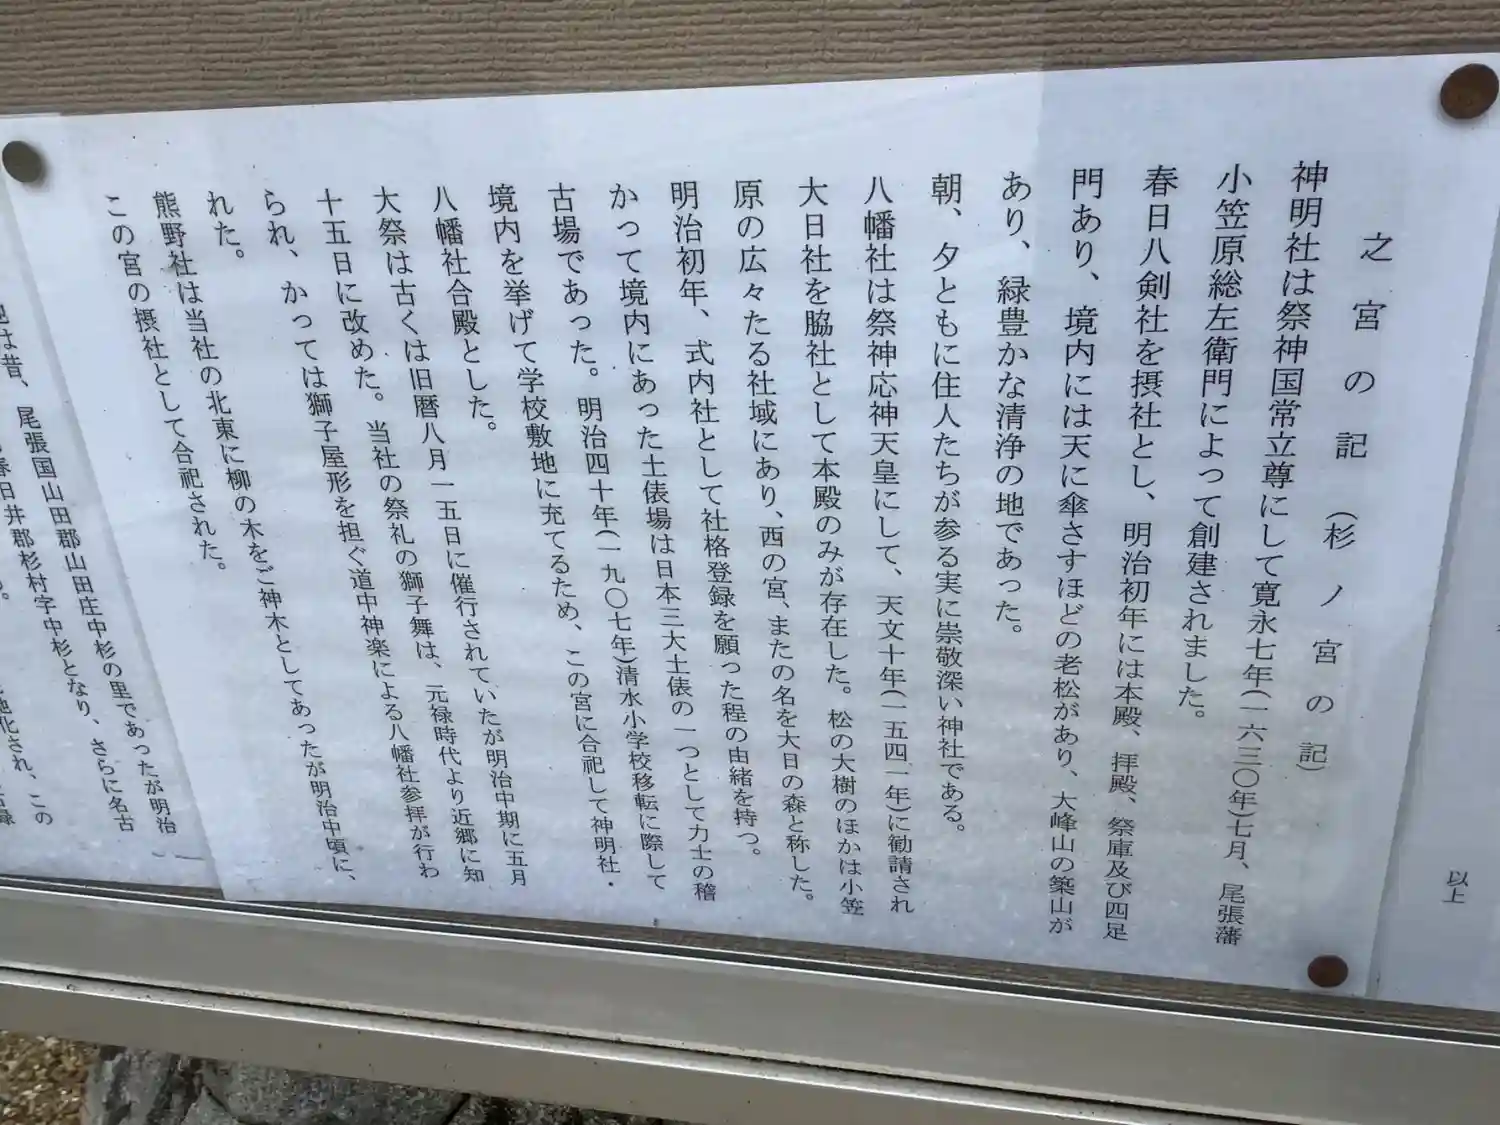 以上
之宮の記（杉ノ宮の記）
神明社は祭神国常立尊にして寛永七年(一六三〇年)七月、尾張藩
小笠原総左衛門によって創建されました。
春日八剣社を摂社とし、明治初年には本殿、拝殿、祭庫及び四足
門あり、境内には天に傘さすほどの老松があり、大峰山の築山が
あり、緑豊かな清浄の地であった。
朝、夕ともに住人たちが参る実に崇敬深い神社である。
八幡社は祭神応神天皇にして、天文十年(一五四一年)に勧請され
大日社を脇社として本殿のみが存在した。松の大樹のほかは小笠
原の広々たる社域にあり、西の宮、またの名を大日の森と称した。
明治初年、式内社として社格登録を願った程の由緒を持つ。
かって境内にあった土俵場は日本三大土俵の一つとして力士の稽
古場であった。明治四十年(一九〇七年)清水小学校移転に際して
境内を挙げて学校敷地に充てるため、この宮に合祀して神明社・
八幡社合殿とした。
大祭は古くは旧暦八月一五日に催行されていたが明治中期に五月
十五日に改めた。当社の祭礼の獅子舞は、元禄時代より近郷に知
られ、かっては獅子屋形を担ぐ道中神楽による八幡社参拝が行わ
れた。
熊野社は当社の北東に柳の木をご神木としてあったが明治中頃に、
この宮の摂社として合祀された。
は昔、尾張国山田郡山田庄中杉の里であったが明治
春日井郡杉村字中杉となり、さらに名古
地化され、この